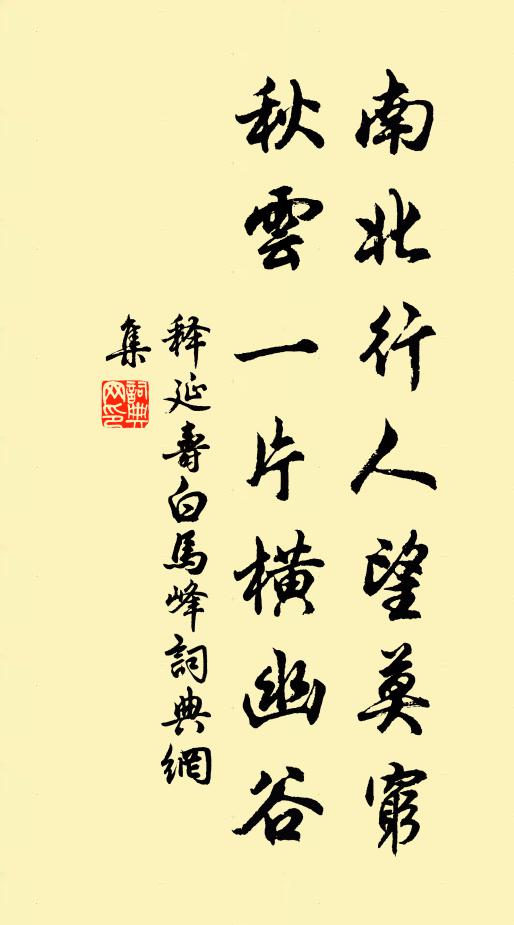 南北行人望莫窮
秋雲一片橫幽谷
释延壽白馬峰詞典網
集
詞典网印